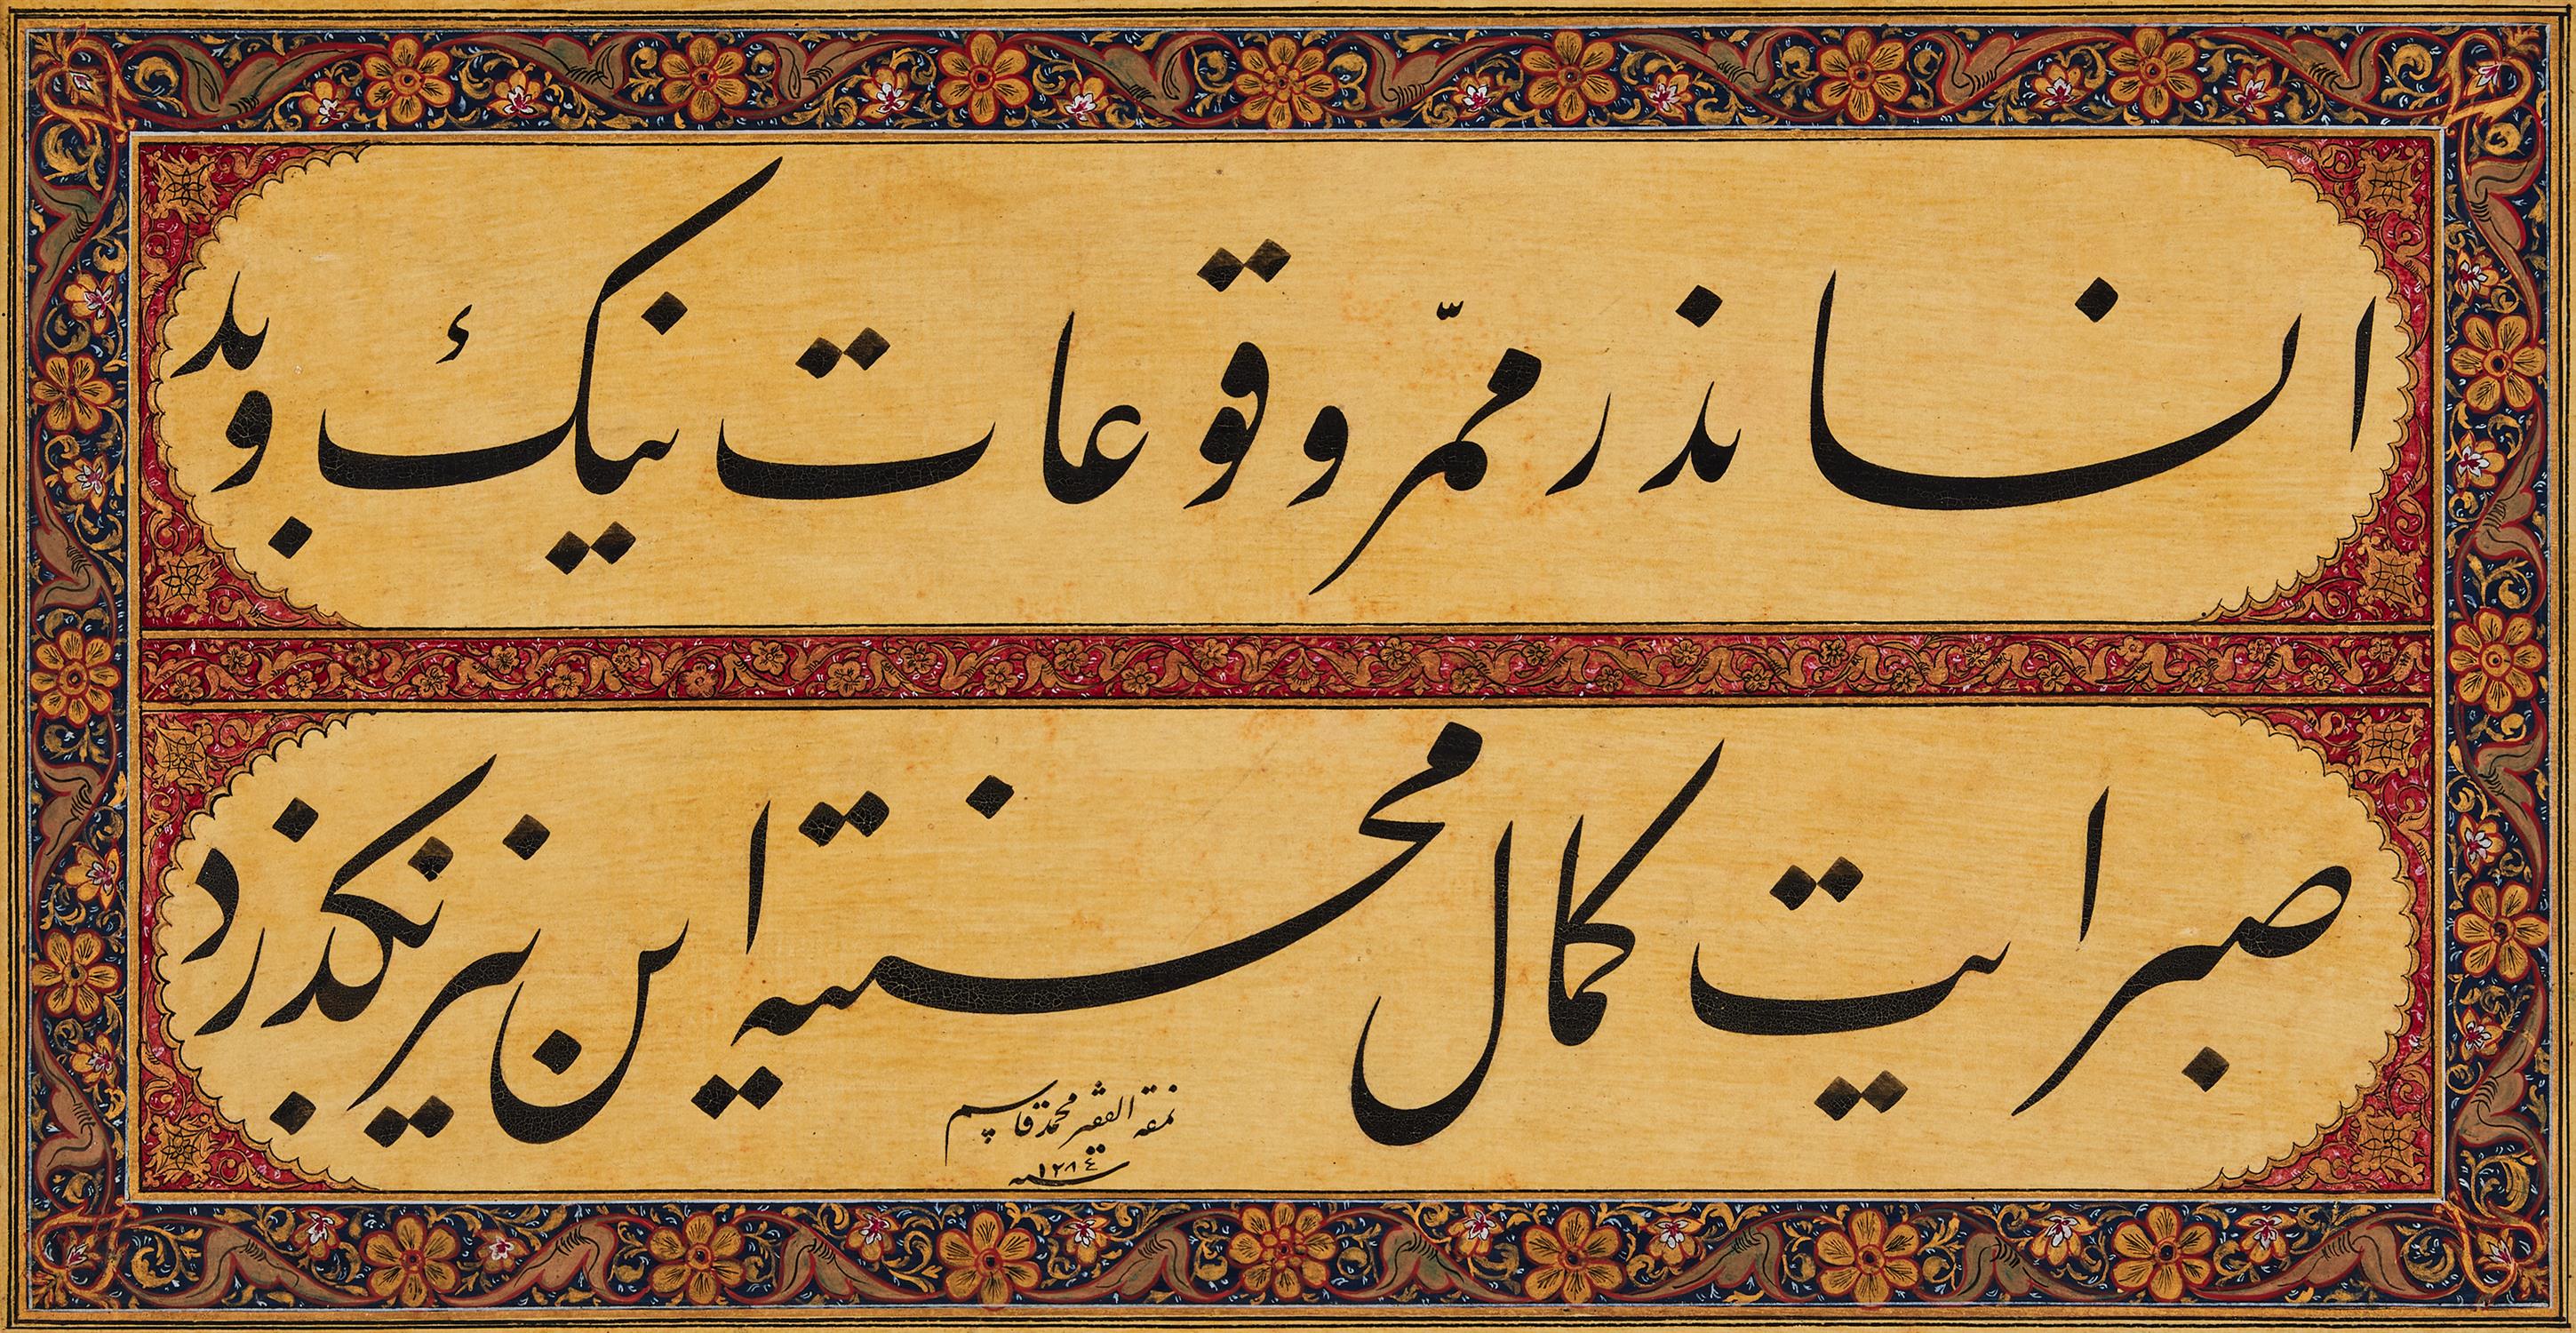 انساندر ممرّ وقوعات نیك و بد
صبر ایت كمال محنتیه این نیز بكذرد
نمقه الفقیر محمد قاسم
سنه ١٢٨٤